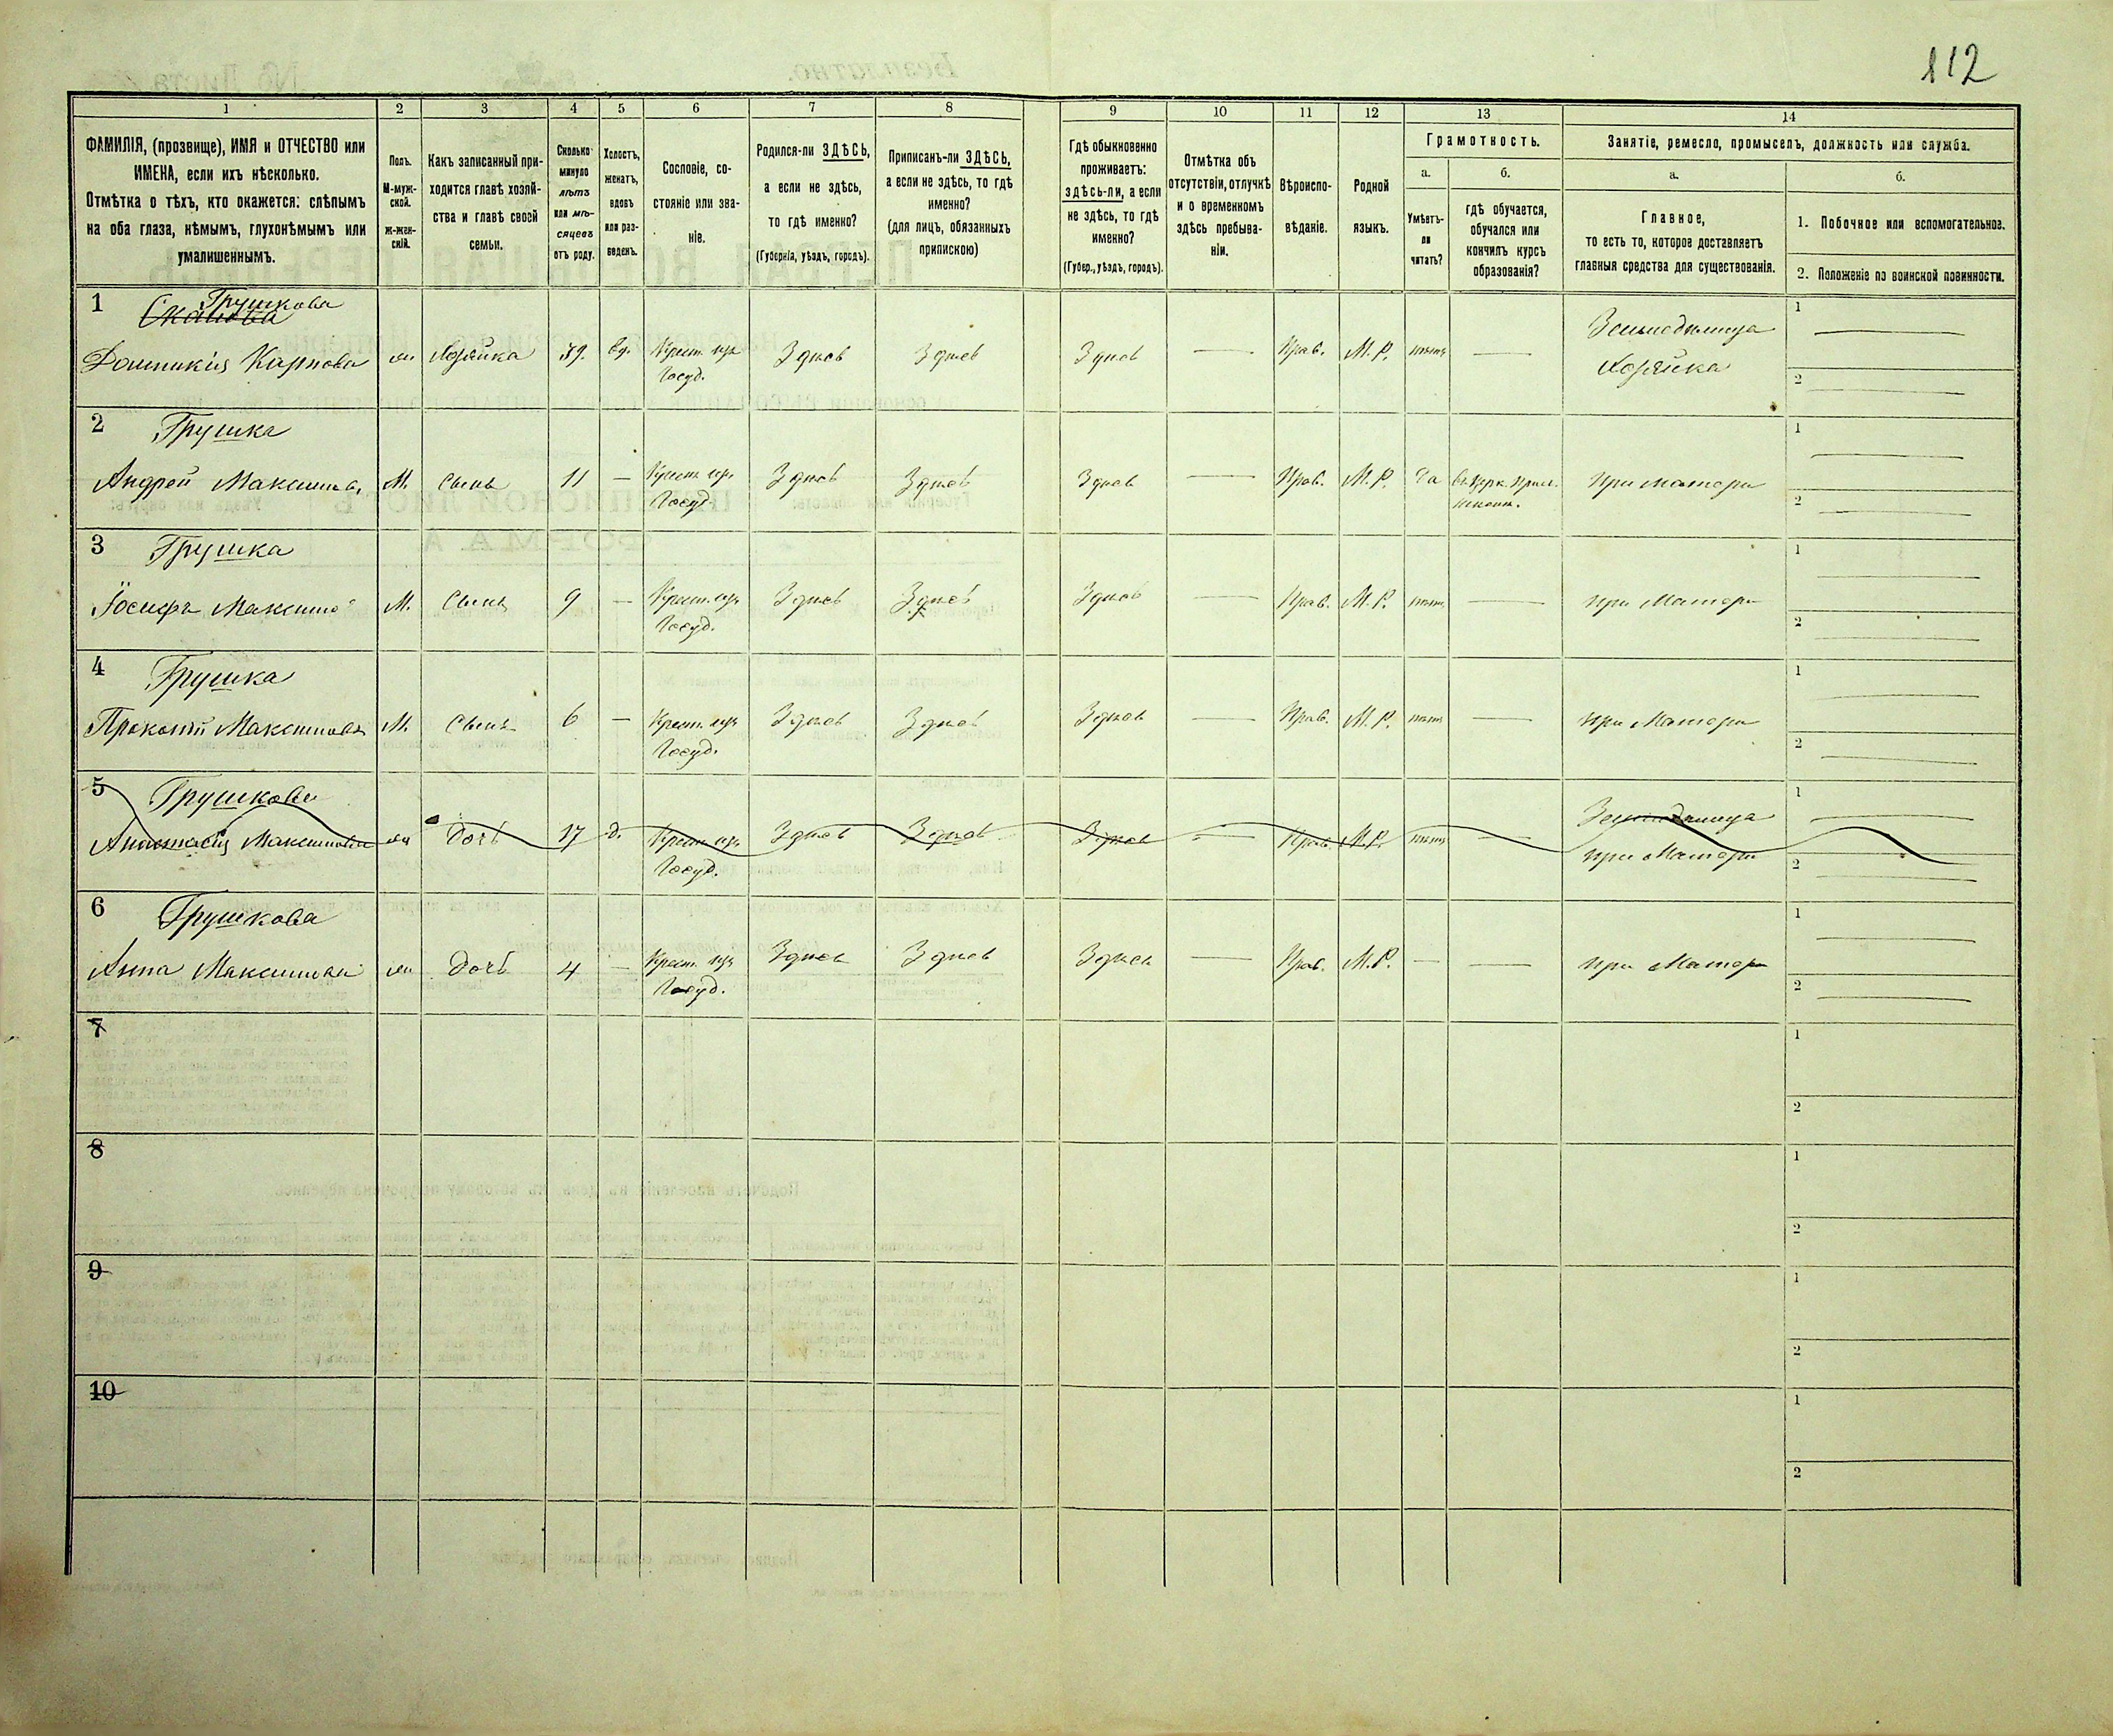 112
1 2 3 4 5 6 7 8 9 10 11 12 13 14
ФАМИЛІЯ, (прозвище), ИМЯ и ОТЧЕСТВО или
ИМЕНА, если ихъ нѣсколько.
Отмѣтка о тѣхъ, кто окажется: слѣпымъ
на оба глаза, нѣмымъ, глухонѣмымъ или
умалишеннымъ.
Полъ.
М-муж-
ской.
ж-жен-
скій.
Какъ записанный при-
ходится главѣ хозяй-
ства и главѣ своей
семьи.
Сколько
минуло
лѣтъ
или мѣ-
сяцевъ
отъ роду.
Холостъ,
женатъ,
вдовъ
или раз-
веденъ.
Сословіе, со-
стояніе или зва-
ніе.
Родился-ли ЗДѢСЬ,
а если не здѣсь,
то гдѣ именно?
(Губернія, уѣздъ, городъ).
Приписанъ-ли ЗДѢСЬ,
а если не здѣсь, то гдѣ
именно?
(для лицъ, обязанныхъ
припискою)
Гдѣ обыкновенно
проживаетъ:
здѣсь-ли, а если
не здѣсь, то гдѣ
именно?
(Губер., уѣздъ, городъ).
Отмѣтка объ
отсутствіи, отлучкѣ
и о временномъ
здѣсь пребыва-
ніи.
Вѣроиспо-
вѣданіе.
Родной
языкъ.
Грамотность.
а.
Умѣетъ-
ли
читать?
б.
гдѣ обучается,
обучался или
кончилъ курсъ
образованія?
Занятіе, ремесло, промыселъ, должность или служба.
а.
Главное,
то есть то, которое доставляетъ
главныя средства для существованія.
б.
1. Побочное или вспомогательное.
2. Положеніе по воинской повинности.
1 Грушкова
Домникія Карпова ж Хозяйка 39. вд. Крест. изъ Здѣсь Здѣсь Здѣсь — Прав. М. Р. нѣтъ — Земледѣлица 1
Госуд. Хозяйка 2
2 Грушка
Андрей Максимов М. сынъ 11 — Крест. изъ Здѣсь Здѣсь Здѣсь — Прав. М. Р. да при матери 1
Госуд. 2
3 Грушка
Іосифъ Максимо М. Сынъ 9 — Крест. изъ Здѣсь Здѣсь Здѣсь — Прав. М. Р. нѣтъ — при Матери 1
Госуд. 2
4 Грушка
Прокопій Максимовъ М. Сынъ 6 — Крест. изъ Здѣсь Здѣсь Здѣсь — Прав. М. Р. нѣтъ — при Матери 1
Госуд. 2
5 Грушкова
Анастасія Максимова ж Дочь 17 д. Крест. изъ Здѣсь Здѣсь Здѣсь — Прав. М. Р. нѣтъ — Земледѣлица 1
Госуд. при Матери 2
6 Грушкова
Анна Максимова ж Дочь 4 — Крест. изъ Здѣсь Здѣсь Здѣсь — Прав. М. Р. — — при Матери 1
Госуд. 2
7 1
2
8 1
2
9 1
2
10 1
2